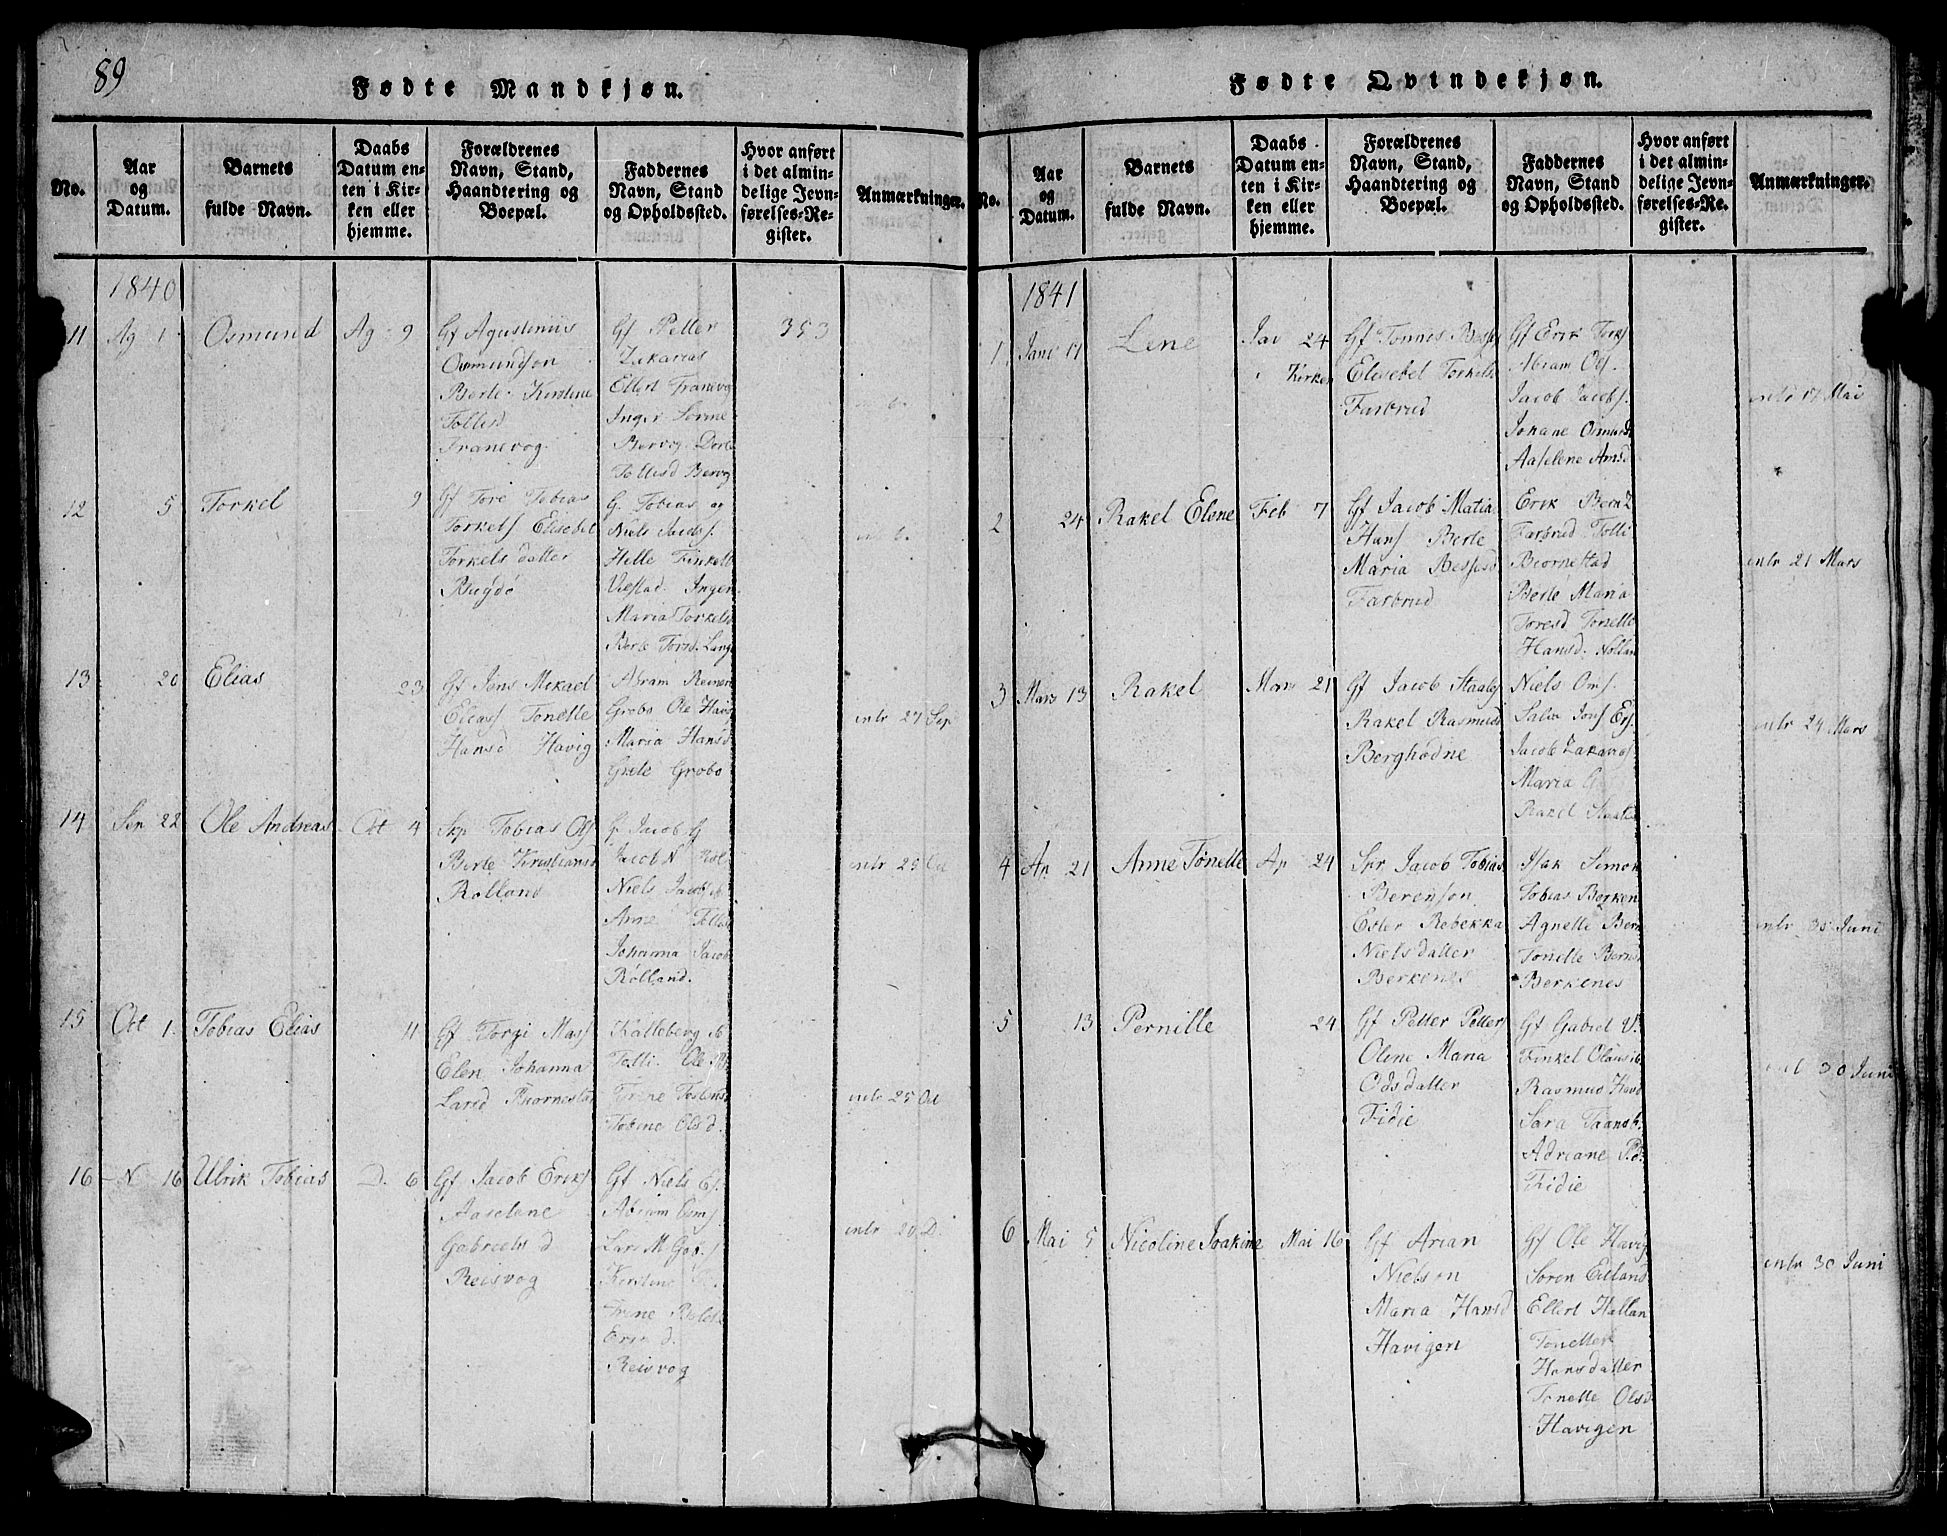 89
Fødte Mandkjøn.
No.
Aar
og
Datum.
Barnets
fulde Navn.
Daabs
Datum en-
ten i Kir-
ken eller
hjemme.
Forældrenes
Navn, Stand,
Haandtering og
Boepæl.
Faddernes
Navn, Stand
og Opholdssted.
Hvor anført
i det almin-
delige Jevn-
førelses-Re-
gister.
Anmærkninger.
1840
11 Ag 1 Osmund Ag 9
Gf Agustinus
Osmundson
Berte Kirstine
Tollisd
Tranevog
Gf Petter
Zakarias
Ellert Tranevog
Inger Sørine
Bervog Dorte
Tollisd Bervog
353
12 5 Torkel 9
Gf Tore Tobias
Torkels Elisebet
Torkels datter
Rugdø
G. Tobias og
Niels Jacobs.
Helle Finkelt
Viestad Inger
Maria Torkels
Berte Torsd. Lang
13 20 Elias 23
Gf Jens Mikael
Elias Tonette
Hansd Havig
Abram Reiners
Grobo Ole Havig
Maria Hansd
Grete Grobo
intr 27 Sep
14 Sep 22 Ole Andreas Oct 4
Skp Tobias Ols
Berte Kristiansd
Rølland
G Jacob G
Jacob N Røl
Niels Jacobs
Anne Tollis
Johanna Jacob
Rølland.
intr 25 Oct
15 Oct 1. Tobias Elias 11
Gf Torgi Mass
Elen Johanna
Larsd Biørnestad
Kalleberg
Tolli. Ole
Trine Tostens
Tobine Olsd.
intr 25 Oct
16 N 16 Ulrik Tobias D. 6
Gf Jacob Eriks
Aaselene
Gabriels d
Reisvog
Gf Niels G.
Abram
Lars M Gab.
Kirstine
Trine
Reisvog
intr 20 D.
Fødte Qvindekjøn.
No.
Aar
og
Datum.
Barnets
fulde Navn.
Daabs
Datum en-
ten i Kir-
ken eller
hjemme.
Forældrenes
Navn, Stand,
Haandtering og
Boepæl.
Faddernes
Navn, Stand
og Opholdssted.
Hvor anført
i det almin-
delige Jevn-
førelses-Re-
gister.
Anmærkninger.
1841
1. Janu 17 Lene Jan 24
i Kirken
Gf Tønnes Besses
Elisebet Torkels
Farbrud
Gf Erik Torks
Abram Ols.
Jacob Jacobs.
Johane Osmunds
Aaselene Amsd
intr 17 Mai
2 24 Rakel Elene Feb 7
Gf Jacob Matias
Hans Berte
Maria Bessesd
Farbrud
Erik Bern
Farbrud Tolli
Biornestad
Berte Maria
Toresd Tonette
Hansd. Nollan
intr 21 Mars
3 Mars 13 Rakel Mars 21
Gf Jacob Staales
Rakel Rasmusd
Berghødne
Niels Oms.
Salve Jons
Jacob Zakarias
Maria
Rakel Staals
intr 24 Mars
4 Ap 21 Anne Tonette Ap 24
Spr Jacob Tobias
Berenson
Ester Rebekka
Nielsdatter
Berkenes
Isak Simon
Tobias Berken
Agnette Bern
Tonette Berns
Berkenes
intr 30 Juni
5 13 Pernille 24
Gf Petter Petters
Oline Maria
Odsdatter
Fidie
Gf Gabriel V.
Finkel Olaus
Rasmus
Sara
Adriane P.d.
Fidie
intr 30 Juni
6 Mai 5 Nicoline Joakine Mai 16
Gf Arian
Nielson
Maria Hansd
Havigen
Gf Ole Havig
Søren Eitlans
Ellert Hallan
Tonetter
Hansdatter
Tonette Olsd
Havigen
intr 30 Juni